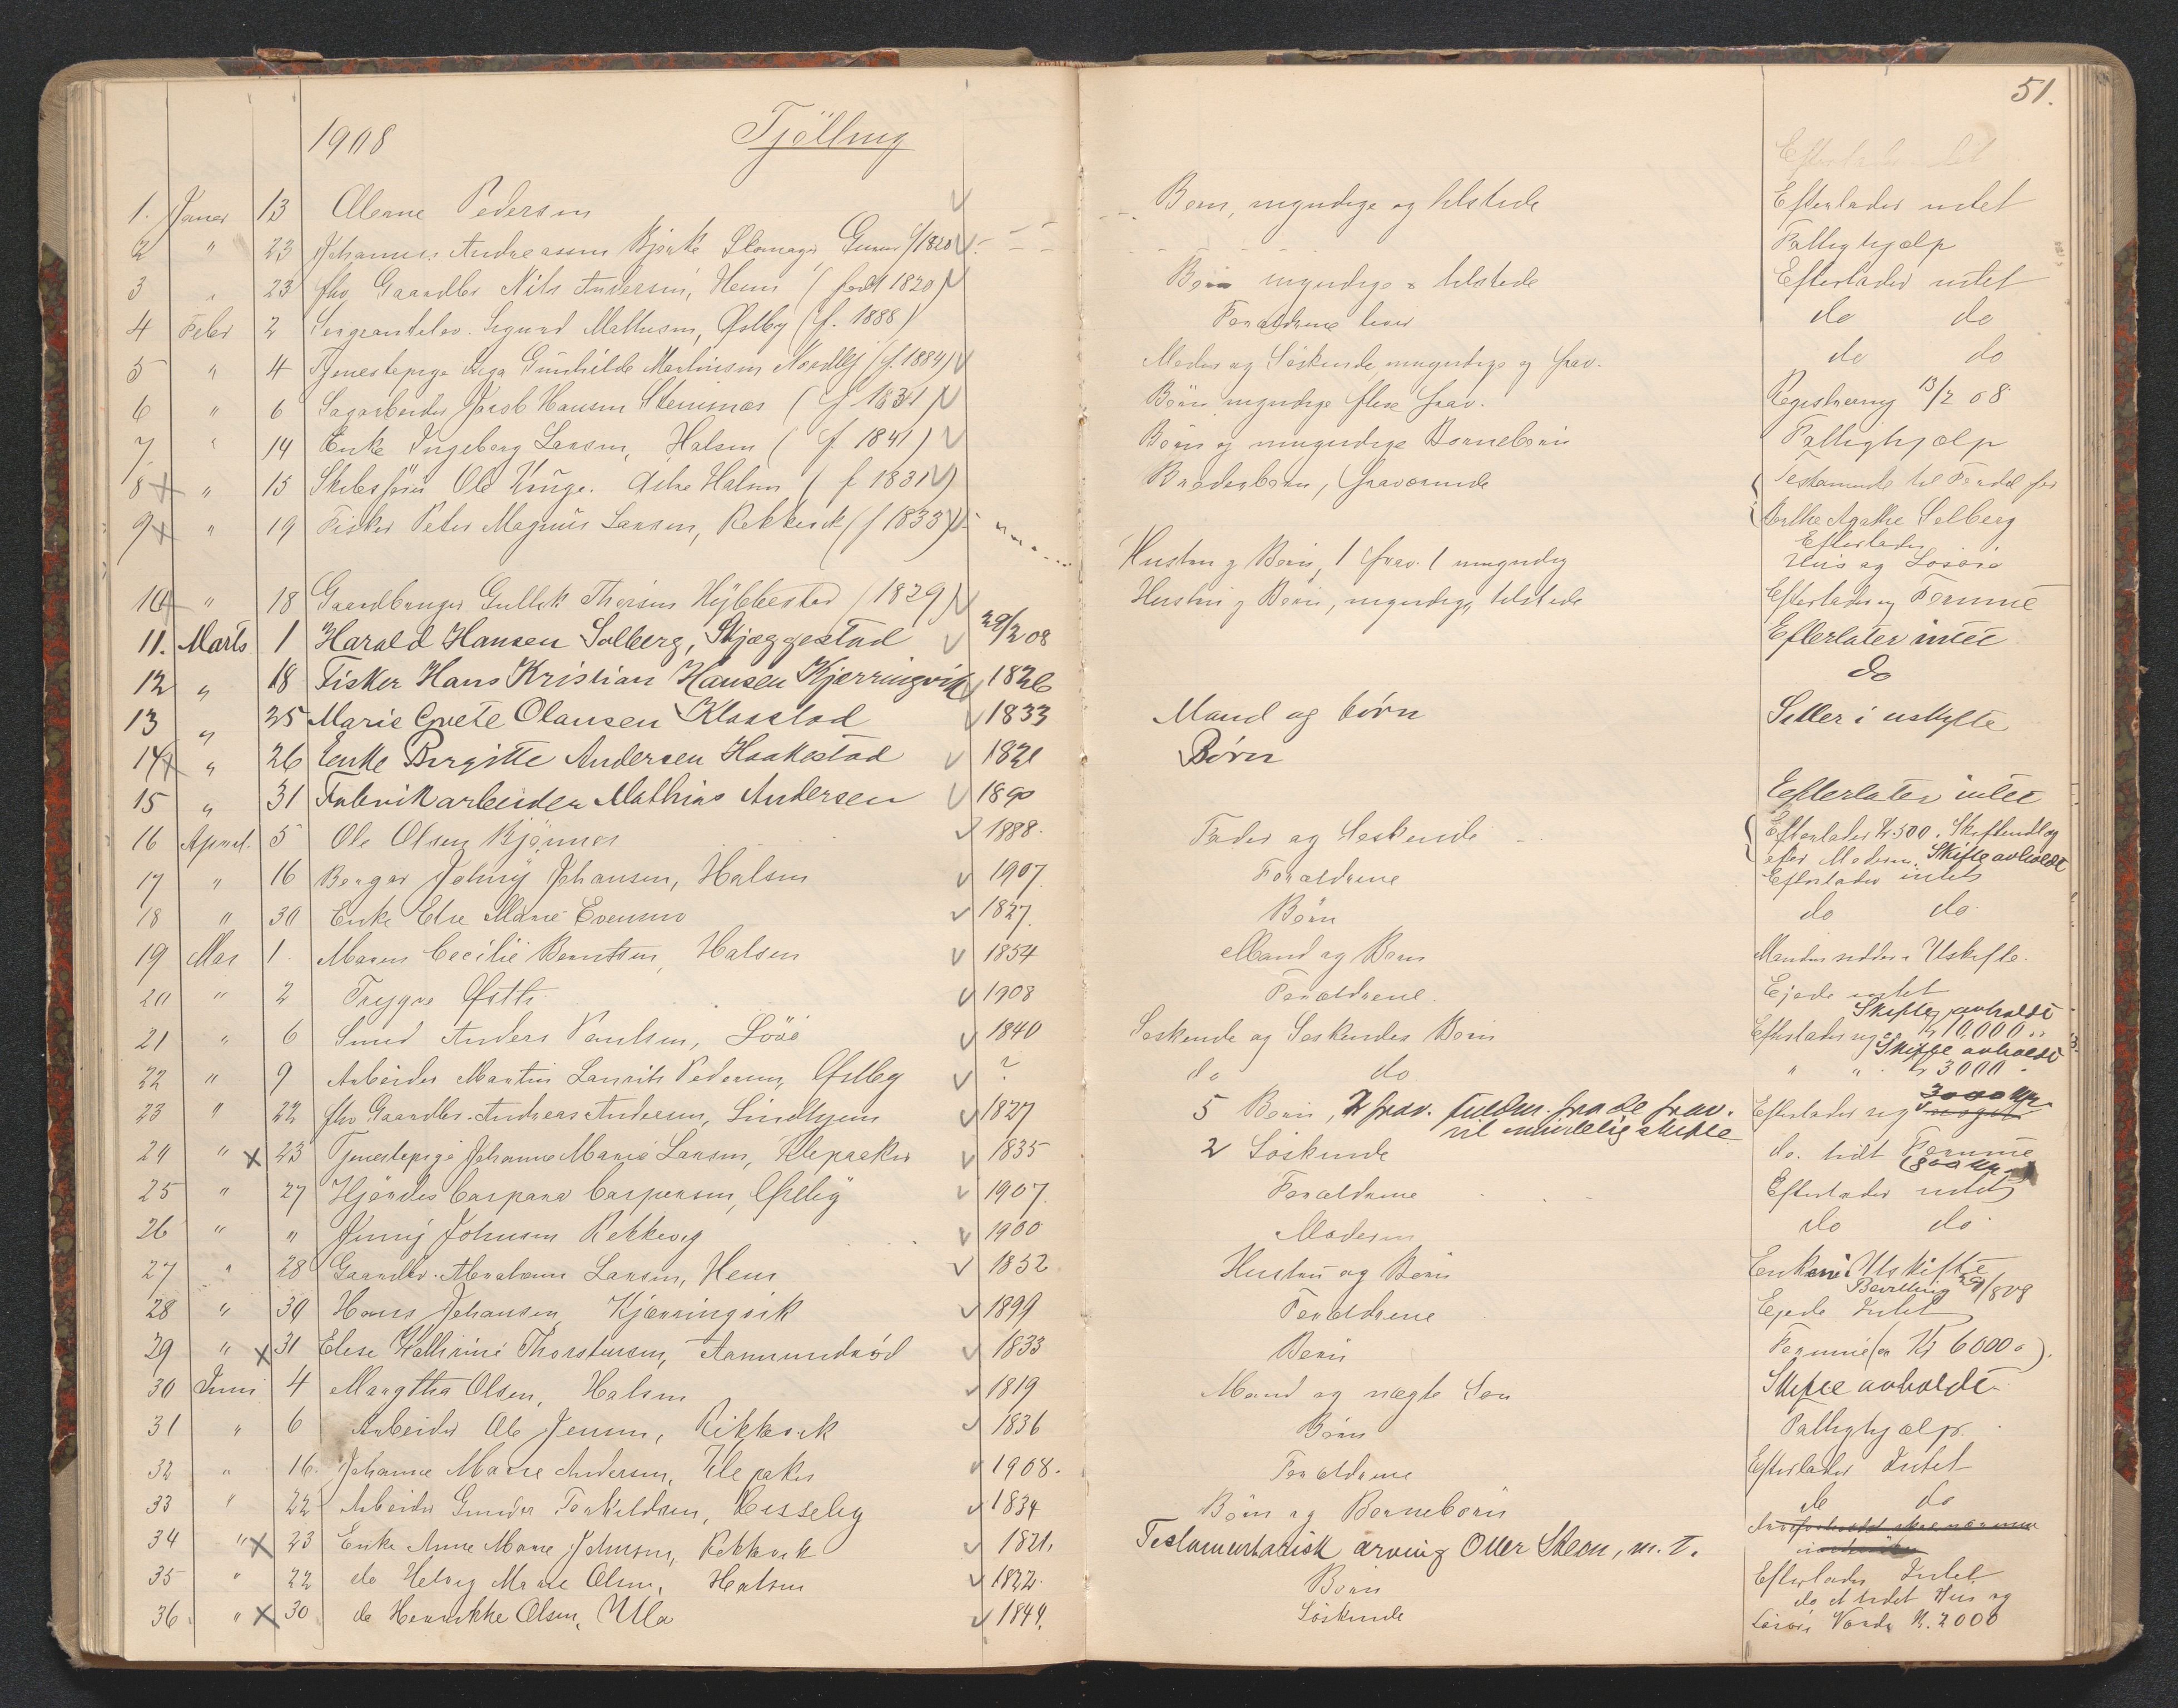 51.
1908 Tjölling
1. Januar 13 Olerine Pedersen Børn, myndige og tilstede Efterlader intet
2 " 23 Johannes Andreassen Bjerke f/1820 Fattighjælp
3 " 23 fhv Gaardbr Nils Andersen, Hem (født 1820) Børn myndige & tilstede Efterlader intet
4 Febr 2 Sigurd Mathisen, Østby (f. 1888) Forældrene lever do do
5 " 4 Tjenestepige Inga Gunhilde Martinsen (f. 1884) Moder og Söskende, umyndige og frav. do do
6 " 6 Sagarbeider Jacob Hansen Steinsnæs (f 1831) Börn myndige flere frav. Registrering 13/2 08
7 " 14 Enke Ingeborg Larsen, Halsen (f. 1841) Börn og umyndige Börnebörn Fattighjælp
8 " 15 Skibsfører Ole Halsen (f 1831) Broderbørn, fraværende Testamente til Fordel for
Agathe Solberg
9 " 19 Fisker Peter Magnus Larsen, Rekkevik (f 1833) Hustru & Børn, 1 frav. 1 umyndig Efterlader
Hus og Løsøre
10 " 18 Gaardbruger Gullik Thorsen Hybbestad (1829) Hustru & Børn, myndige, tilstede Efterlader Formue
11. Marts 1 Harald Hansen Solberg, Skjæggestad 29/2 08 Efterlater intet
12 " 18 Fisker Hans Kristian Hansen Kjærringvik 1826 do
13 " 25 Marie Grete Olausen Klaastad 1833 Mand og børn Sitter i uskifte
14 " 26 Enke Birgitte Andersen Haakestad 1821 Børn
15 " 31 Fabrikarbeider Mathias Andersen 1890 Efterlater intet
16 April 5 Ole Olsen Bjønnes 1888. Fader og Søskende Efterlader Kr. 500.
efter Moderen. Skifte avholdt
17 " 16 Johansen, Halsen 1907 Forældrene Efterlader intet
18 " 30 Enke Else Marie Evensen 1827. Børn do do
19 Mai 1. Maren Cecilie Berntsen, Halsen 1854 Mand og Børn Manden sidder i Uskifte.
20 " 2 Trygve 1908 Forældrene. Ejede intet
21 " 6 Smed Anders Paulsen, 1840 Søskende og Søskendes Børn Skifte avholdt
Efterlader sig Kr 10,000
22 " 9 Arbeider Martin Laurits Pedersen, Østby ? do do Skifte avholdt
" " Kr 3000
23 " 22 fhv Gaardbr. Andreas Andersen, Lindhjem 1827 5 Børn, 2 frav. fuldm. fra de frav. Efterlader sig 3000 kr
til mindelig skifte
24 " 23 Tjenestepige Johanne Marie Larsen, Klepaker 1835 2 Söskende do. lidt Formue
(800 kr)
25 " 27 Hjørdis Caspara Caspersen, Østby 1907. Forældrene Efterlader intet
26 " " Jenny Johnsen Rekkevig 1900 Moderen do do
27 " 28 Gaardbr. Abraham Larsen, Hem 1852 Hustru og Børn Enken i Uskifte
Bevilling
28 " 30 Hans Johansen Kjærringvik 1899 Forældrene Ejede Intet
29 " 31 Elise Kathrine Thorstensen, Aamundrød 1833 Børn Formue (ca Kr 6000).
30 Juni 4 Olsen, Halsen 1819 Mand og Søn Skifte avholdt
31 " 6 Arbeider Ole Jensen, Rekkevik 1836 Børn Fattighjælp.
32 " 16. Johanne Marie Andersen, Klepaker 1908. Forældrene Efterlader Intet
33 " 22 Arbeider Gunder Torkildsen, 1834 Børn og Børnebørn do do
34 " 23 Enke Anne Marie Johnsen, Rekkevik 1821. Testamentarisk arving Otter Steen, m. T.
35 " 22 do Helvig Marie Olsen, Halsen 1822. Børn Efterlader Intet
36 " 30 do Henrikke Olsen, Ula 1849. Söskende do et lidet Hus og
Løsøre Værdi Kr. 2000